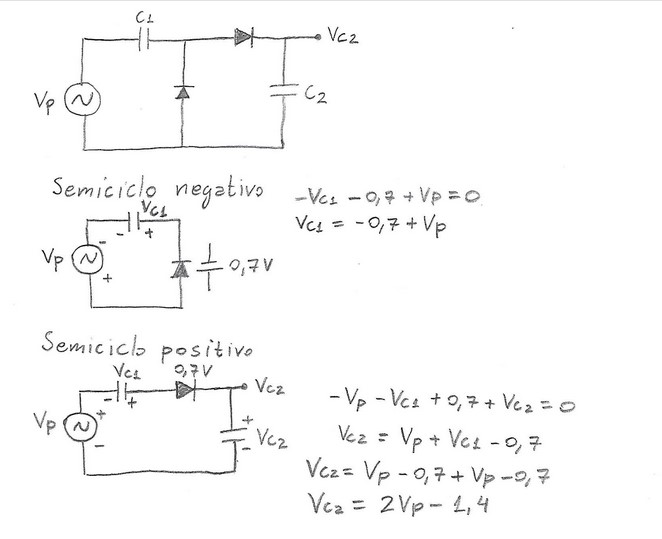 C1
Vc2
Vp
C2
Semiciclo negativo
-Vc1 - 0,7 + Vp = 0
Vc1 = -0,7 + Vp
Vc1
- +
-
Vp
+
0,7V
Semiciclo positivo
Vc1
0,7V
- +
Vc2
Vp
+
-
+
Vc2
-
-Vp - Vc1 + 0,7 + Vc2 = 0
Vc2 = Vp + Vc1 - 0,7
Vc2 = Vp - 0,7 + Vp - 0,7
Vc2 = 2Vp - 1,4